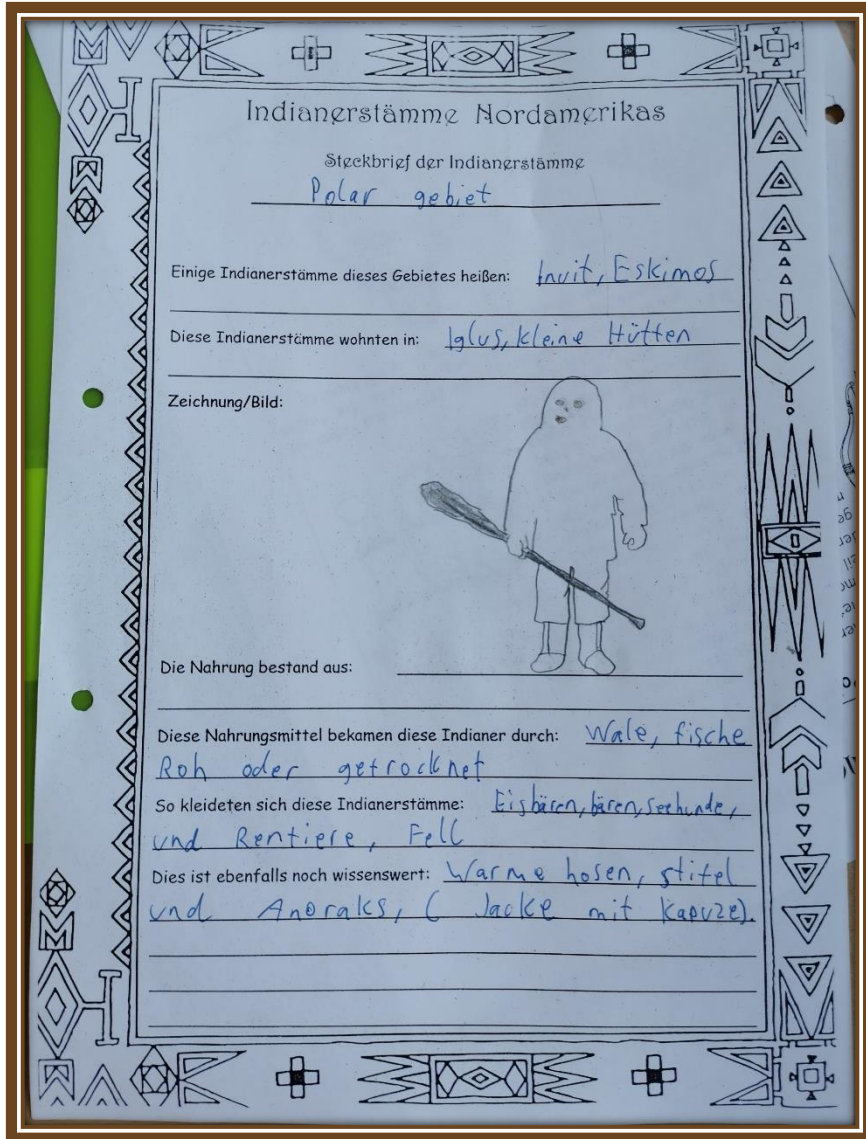 Indianerstämme Nordamerikas
Steckbrief der Indianerstämme
Polar gebiet
Einige Indianerstämme dieses Gebietes heißen: Inuit, Eskimos
Diese Indianerstämme wohnten in: Iglus, kleine Hütten
Zeichnung/Bild:
Die Nahrung bestand aus:
Diese Nahrungsmittel bekamen diese Indianer durch: Wale, fische
Roh oder getrocknet
So kleideten sich diese Indianerstämme: Eisbären, bären, Seehunde,
und Rentiere, Fell
Dies ist ebenfalls noch wissenswert: Warme hosen, stifel
und Anoraks, ( Jacke mit Kapuze).